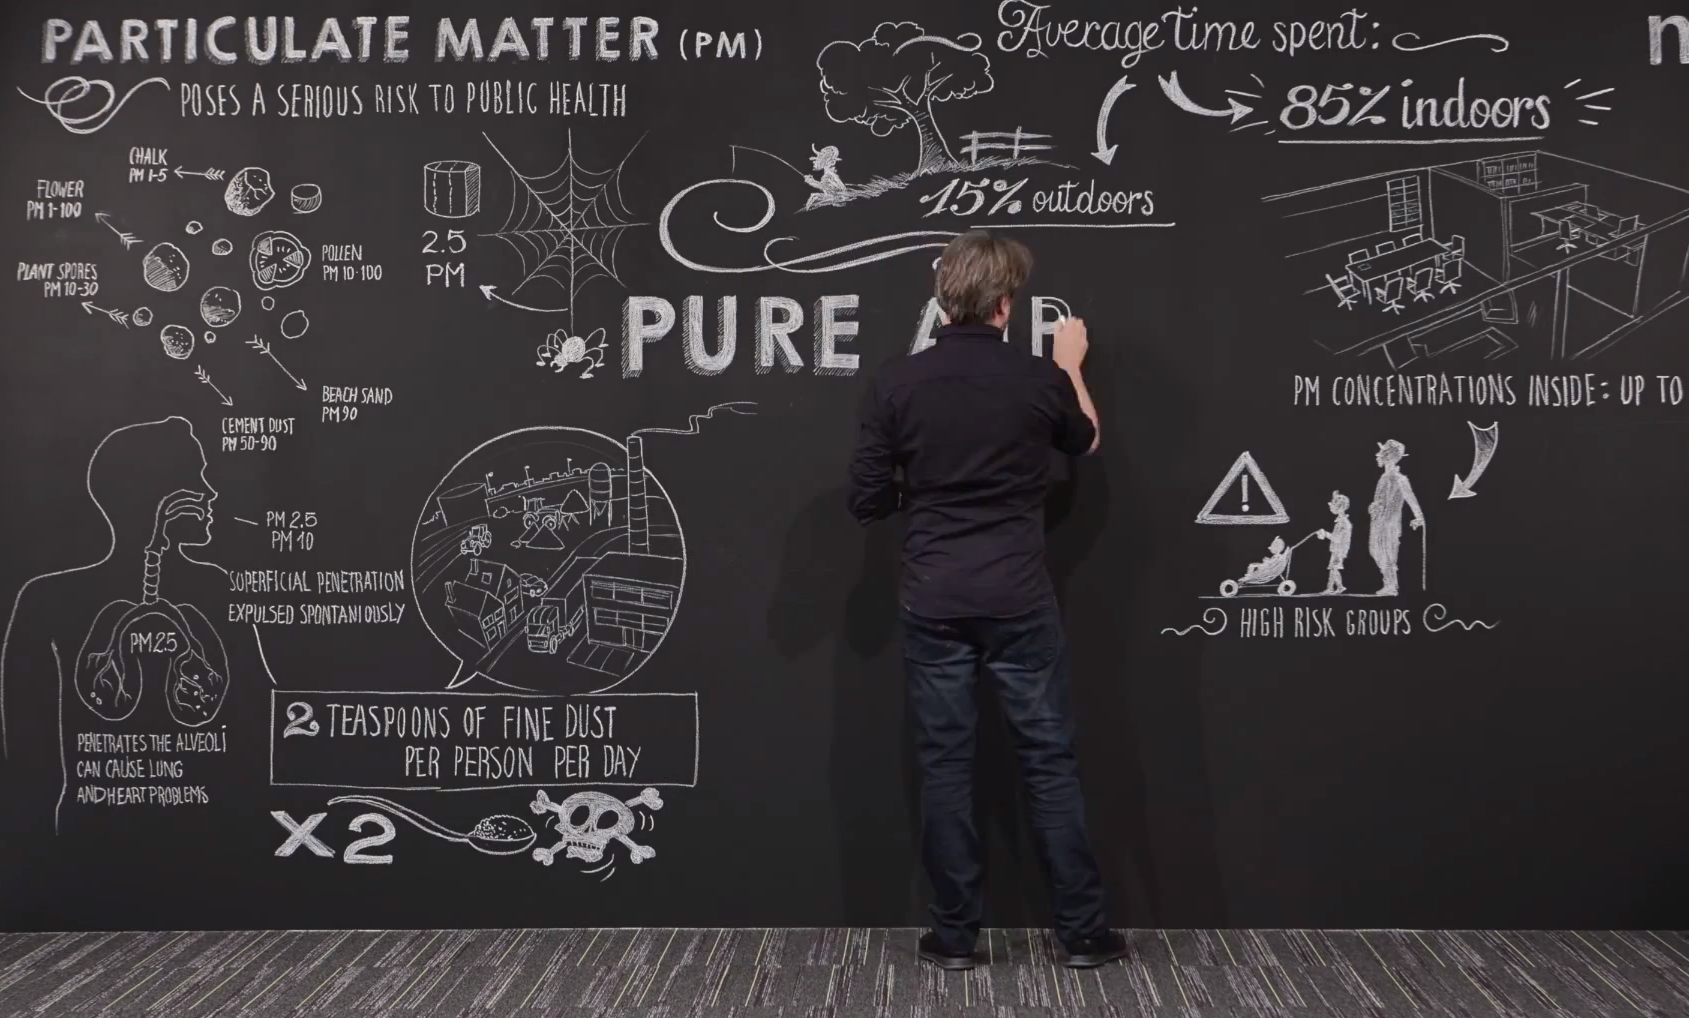 PARTICULATE MATTER (PM)
POSES A SERIOUS RISK TO PUBLIC HEALTH
CHALK
PM 1-5
FLOWER
PM 1-100
PLANT SPORES
PM 10-30
POLLEN
PM 10-100
BEACH SAND
PM 90
CEMENT DUST
PM 50-90
2.5
PM
Average time spent:
85% indoors
15% outdoors
PURE
PM CONCENTRATIONS INSIDE: UP TO
HIGH RISK GROUPS
PM 2.5
PM 10
SUPERFICIAL PENETRATION
EXPULSED SPONTANIOUSLY
PM2.5
PENETRATES THE ALVEOLI
CAN CAUSE LUNG
AND HEART PROBLEMS
2 TEASPOONS OF FINE DUST
PER PERSON PER DAY
X2